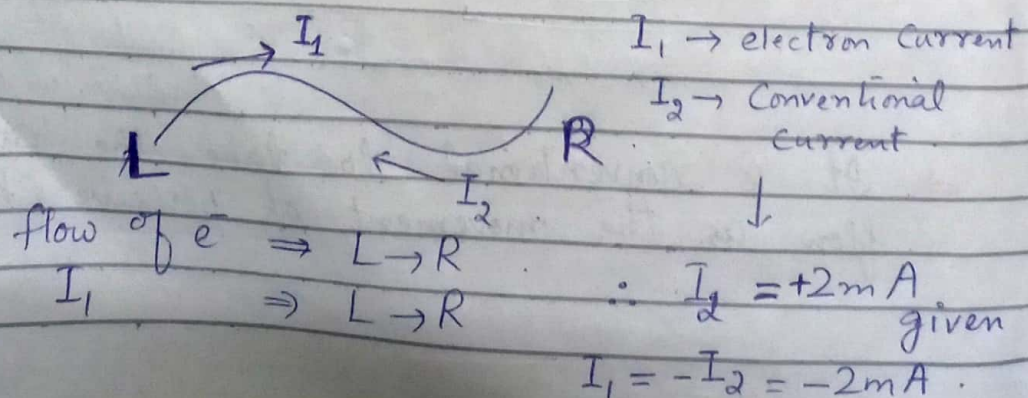 I₁
I₁ → electron Current
I₂ → Conventional
current
L
R
I₂
flow of e⁻ ⇒ L → R
I₁ ⇒ L → R
∴ I₂ = +2mA
given
I₁ = -I₂ = -2mA.